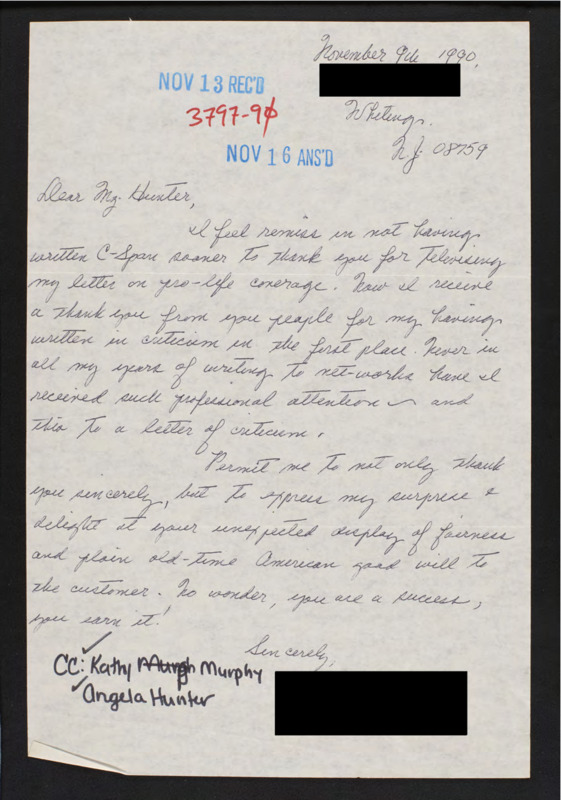 November 9th 1990,
NOV 13 REC'D
3797-90
Whiting,
N.J. 08759
NOV 16 ANS'D
Dear Mz. Hunter,
I feel remiss in not having
written C-Span sooner to thank you for Televising
my letter on pro-life coverage. Now I receive
a thank you from you people for my having
written in criticism in the first place. Never in
all my years of writing to net-works have I
received such professional attention and
this to a letter of criticism.
Permit me to not only thank
you sincerely, but to express my surprise &
delight at your unexpected display of fairness
and plain old-time American good will to
the customer. No wonder, you are a success,
you earn it!
Sincerely,
CC: Kathy Murphy
Angela Hunter